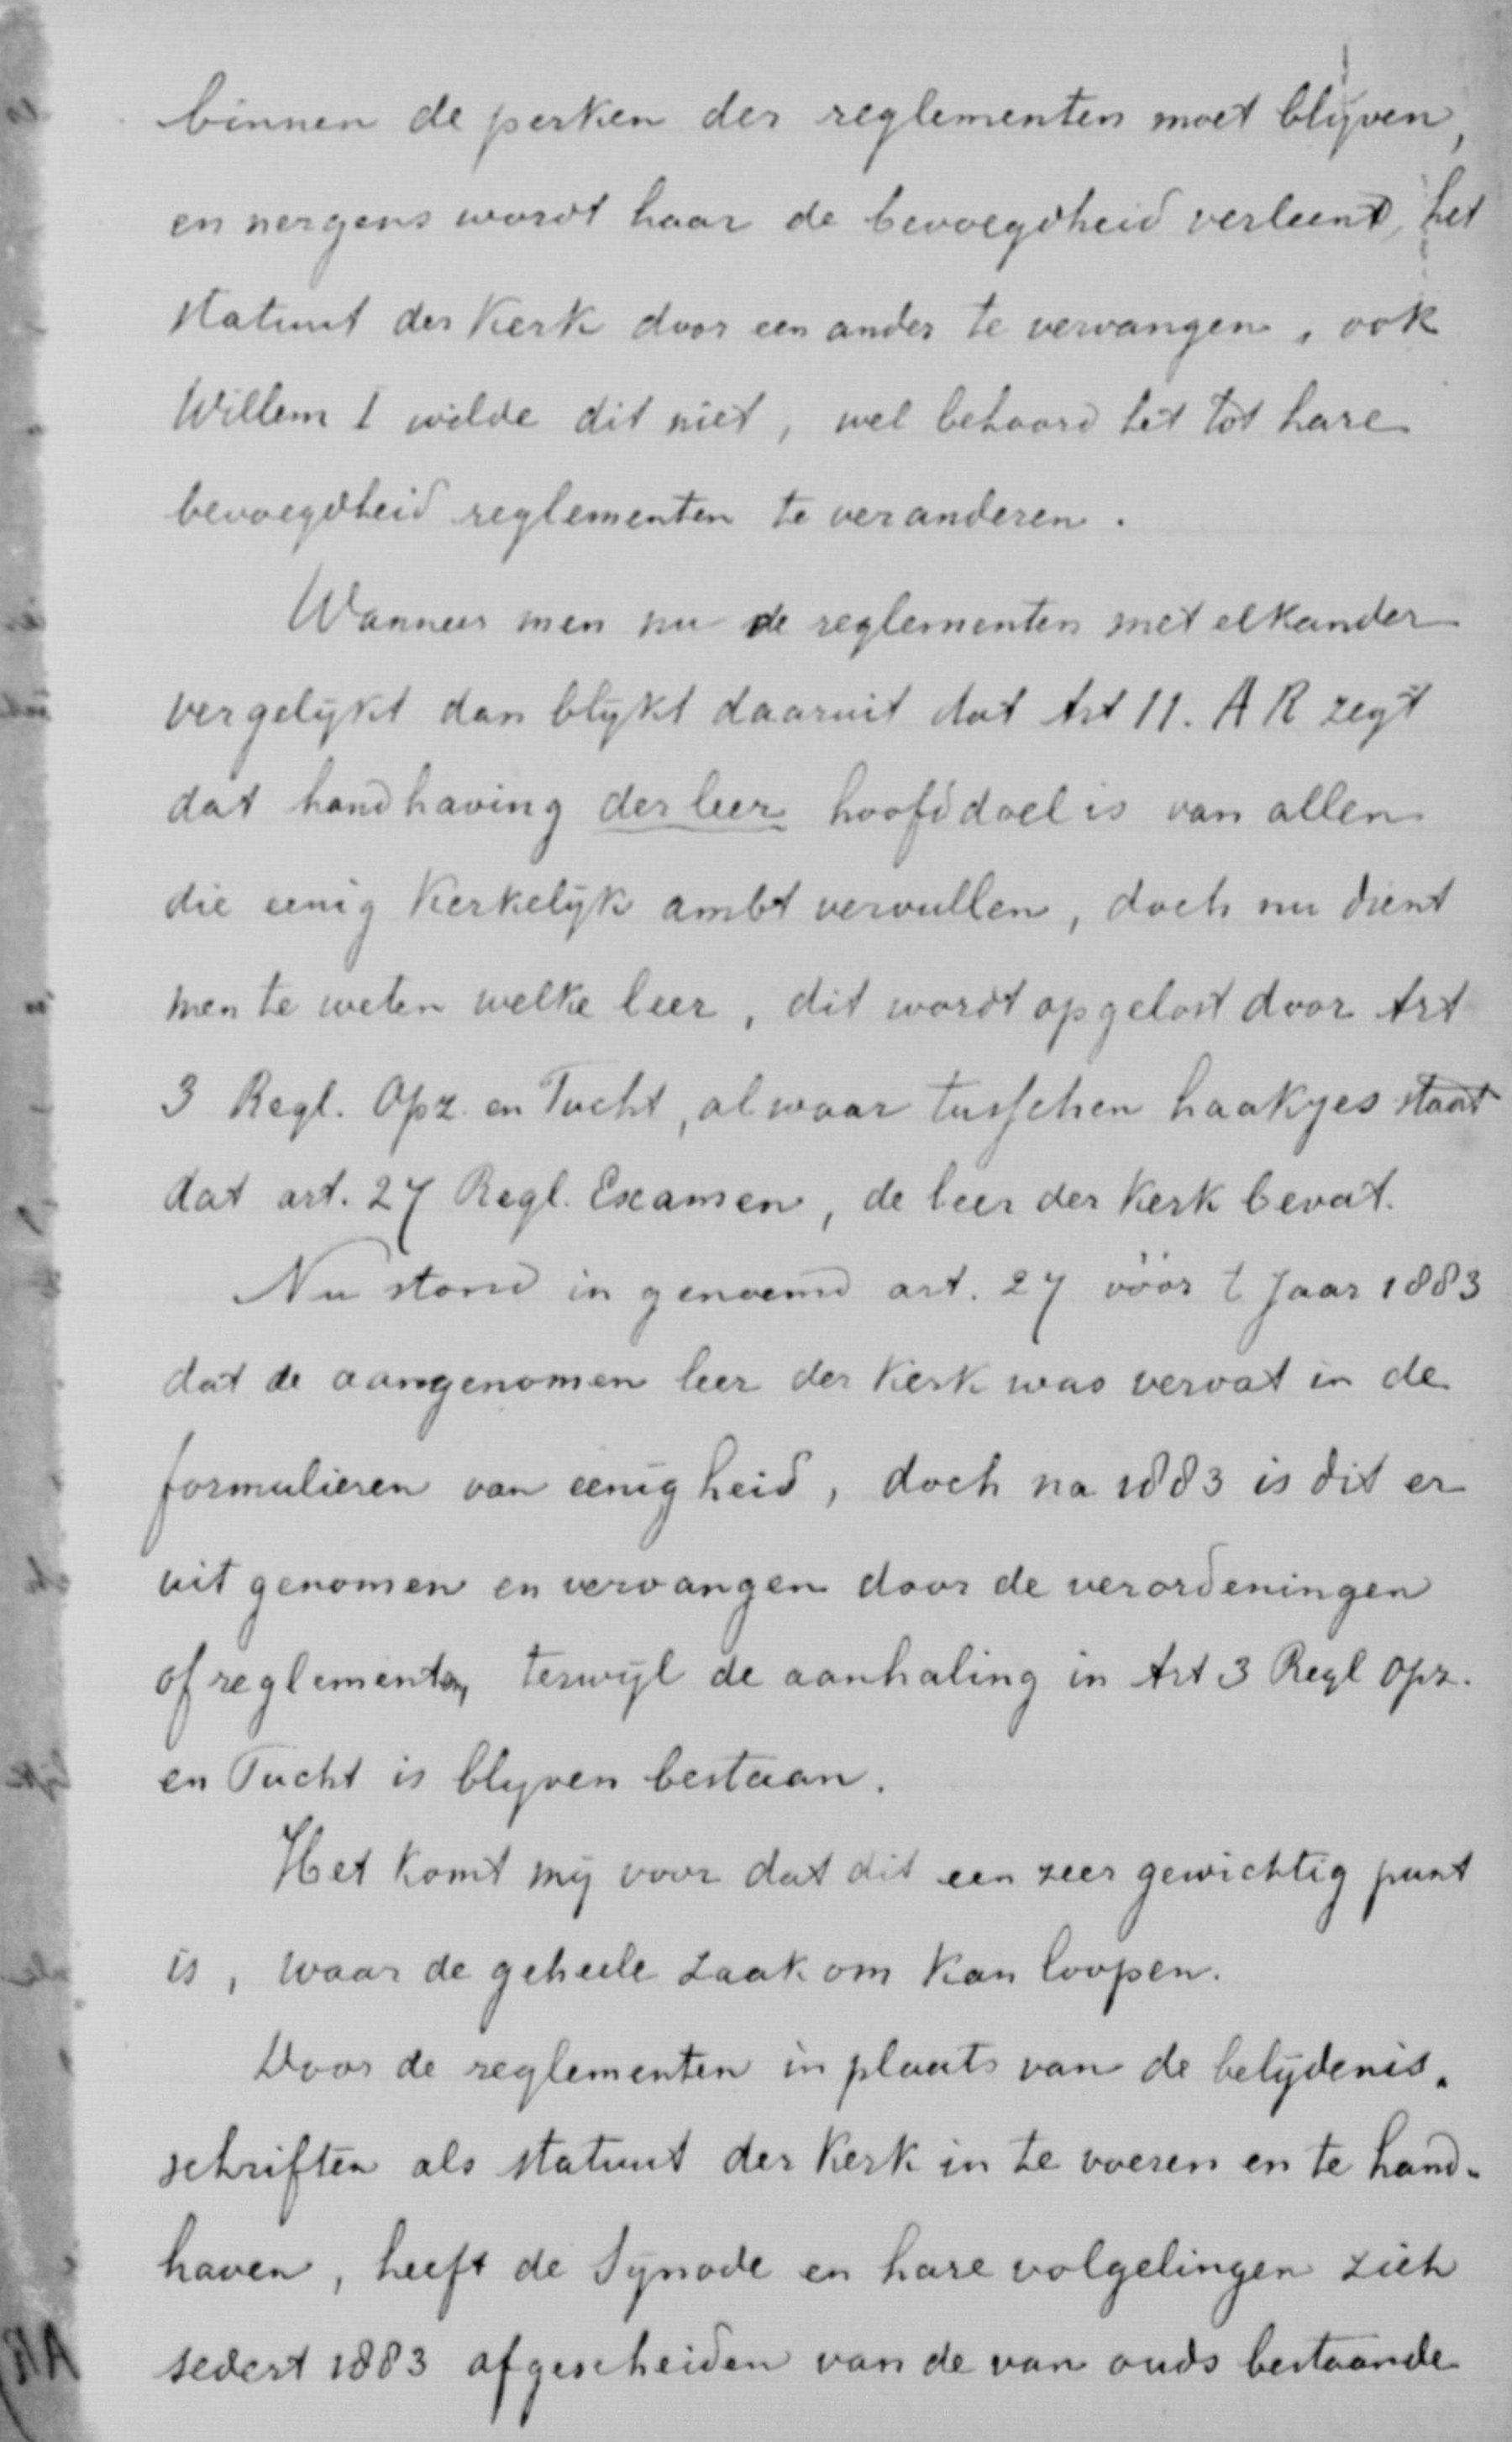 binnen de perken der reglementen moet blijven,
en nergens wordt haar de bevoegdheid verleend, het
statuut der Kerk door een ander te vervangen, ook
Willem I wilde dit niet, wel behoord het tot hare
bevoegdheid reglementen te veranderen.
Wanneer men nu de reglementen met elkander
vergelijkt dan blijkt daaruit dat Art 11. A R zegt
dat handhaving der leer hoofddoel is van allen
die eenig Kerkelijk ambt vervullen, doch nu dient
men te weten welke leer, dit wordt opgelost door Art
3 Regl. Opz. en Tucht, alwaar tusschen haakjes staat
dat art. 27 Regl. Examen, de leer der Kerk bevat.
Nu stond in genoemd art. 27 vóór t Jaar 1883
dat de aangenomen leer der Kerk was vervat in de
formulieren van eenigheid, doch na 1883 is dit er
uit genomen en vervangen door de verordeningen
of reglementen, terwijl de aanhaling in Art 3 Regl Opz.
en Tucht is blijven bestaan.
Het komt mij voor dat dit een zeer gewichtig punt
is, waar de geheele zaak om kan loopen.
Door de reglementen in plaats van de belijdenis-
schriften als statuut der Kerk in te voeren en te hand-
haven, heeft de Synode en hare volgelingen zich
sedert 1883 afgescheiden van de van ouds bestaande